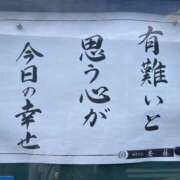 有難いと
思う心が
今日の幸せ